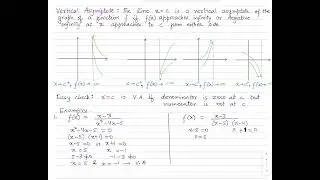 Vertical Asymptote : The line x=c is a vertical asymptote of the
graph of a function f if f(x) approaches infinity or negative
infinity as x approaches to c from either side.
Easy check: x=c is V.A if denominator is zero at c but
numerator is not at c.
Examples
1. f(x) = x-3 / x²-4x-5
x²-4x-5 = 0
(x-5) (x+1) = 0
x-5=0 or x+1=0
x=5 x=-1
5-3≠0 -1-3≠0
x=5 & x=-1 → V.A
f(x) = x-3 / (x-5) (x-4)
x-5=0
x=5